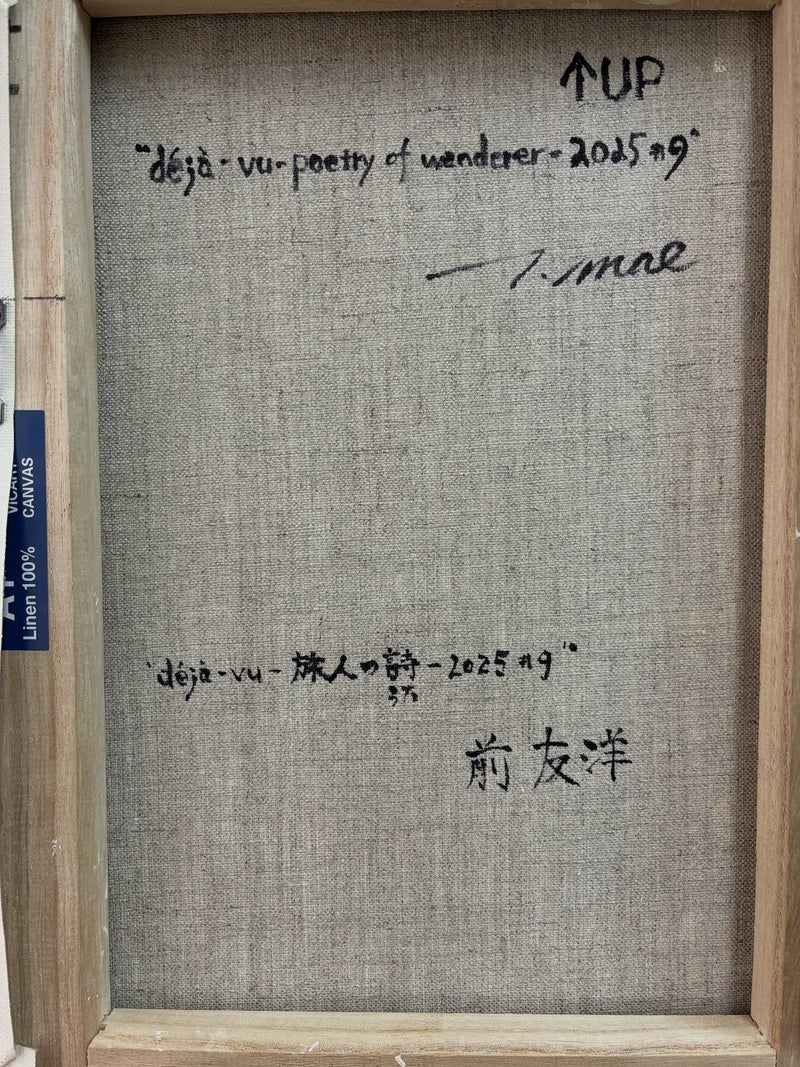 ↑UP
"déjà-vu-poetry of wanderer-2025 #9"
T. mae
"déjà-vu-旅人の詩-2025 #9"
うた
前 友洋
CANVAS
Linen 100%